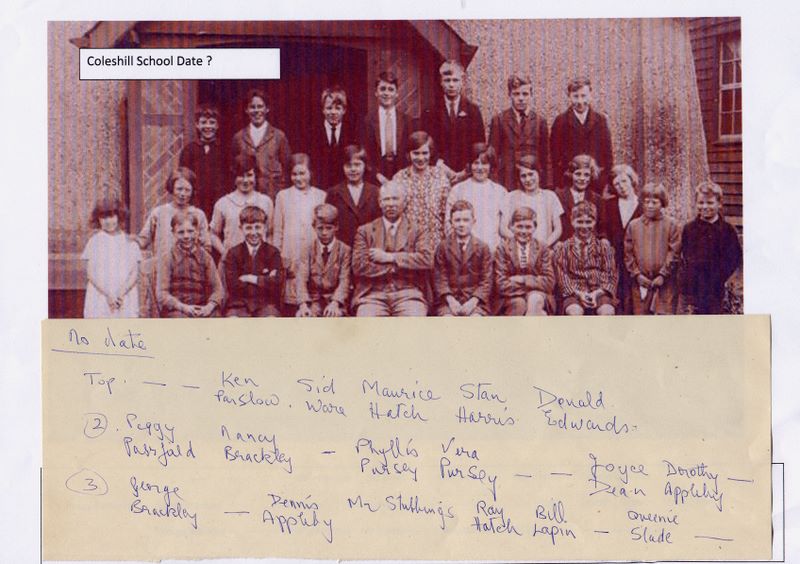 Coleshill School Date ?
no date
Top. — — Ken Sid Maurice Stan Donald
Parslow. Ware Hatch Harris Edwards.
(2). Peggy Nancy Phyllis Vera Joyce Dorothy —
Brackley — Pursey Pursey — — Dean Appleby
(3) George Dennis Mr Stubbings Ray Bill Queenie
Brackley — Appleby Hatch Lapin — Slade —